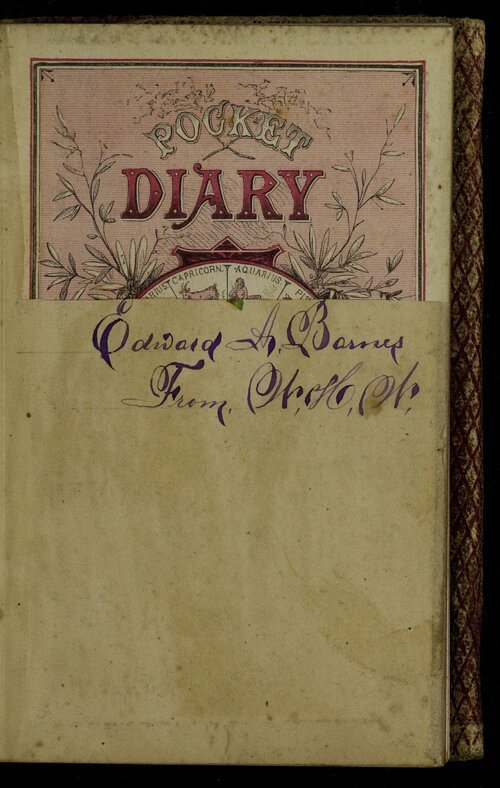 POCKET
DIARY
CAPRICORN. AQUARIUS.
Edward A. Barnes
From, W. H. W.